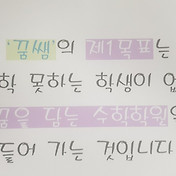 '꿈쌤'의 제1목표는
학 못하는 학생이 없
꿈을 담는 수학학원
들어 가는 것입니다